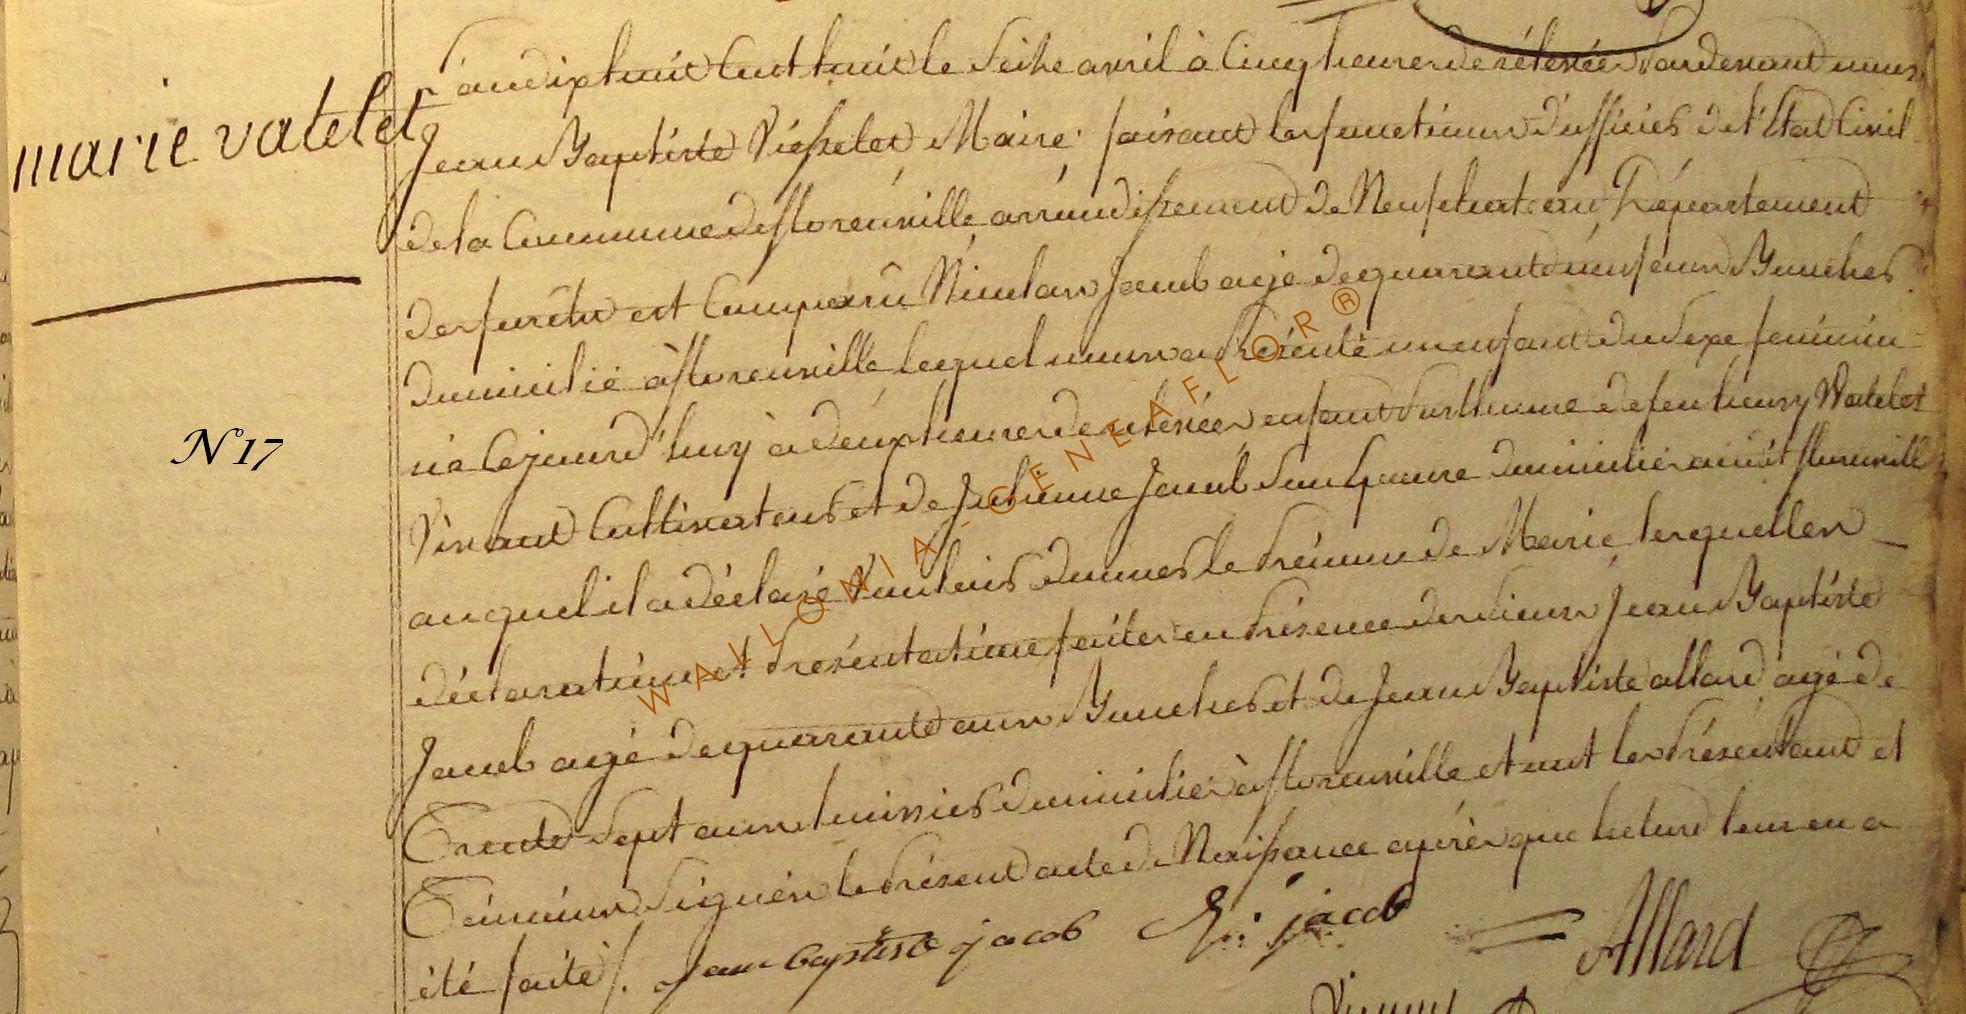 marie vatelet
N 17
L'an dix huit Cent huit le Seize avril à Cinq heures de relevée Pardevant nous
Jean Baptiste Maire faisant les fonctions d'officier de l'Etat Civil
de la Commune de florenville arrondissement de Neufchateau Département
des forêts est Comparû Nicolas Jacob agé de quarante neuf ans Boucher
domicilié à florenville lequel nous a Présenté un enfant du Sexe feminin
né Cejourd'huy à deux heures de relevée enfant Posthume de feu henry Watelet
Vivant Cultivateur et de Julienne Jacob Son Epouse domiciliés audit florenville
auquel il a déclaré Vouloir donner le Prénom de Marie lesquelles
déclaration et Présentation faites en Présence des Sieurs Jean Baptiste
Jacob agé de quarante ans Boucher et de Jean Baptiste allard agé de
Trente Sept ans huissier domiciliés à florenville et ont les Présentant et
Témoins Signés le Présent acte de Naissance après que lecture leur en a
été faite /. Jean baptiste jacob N: jacob Allard
WALLONIA - GENEAFLOR®